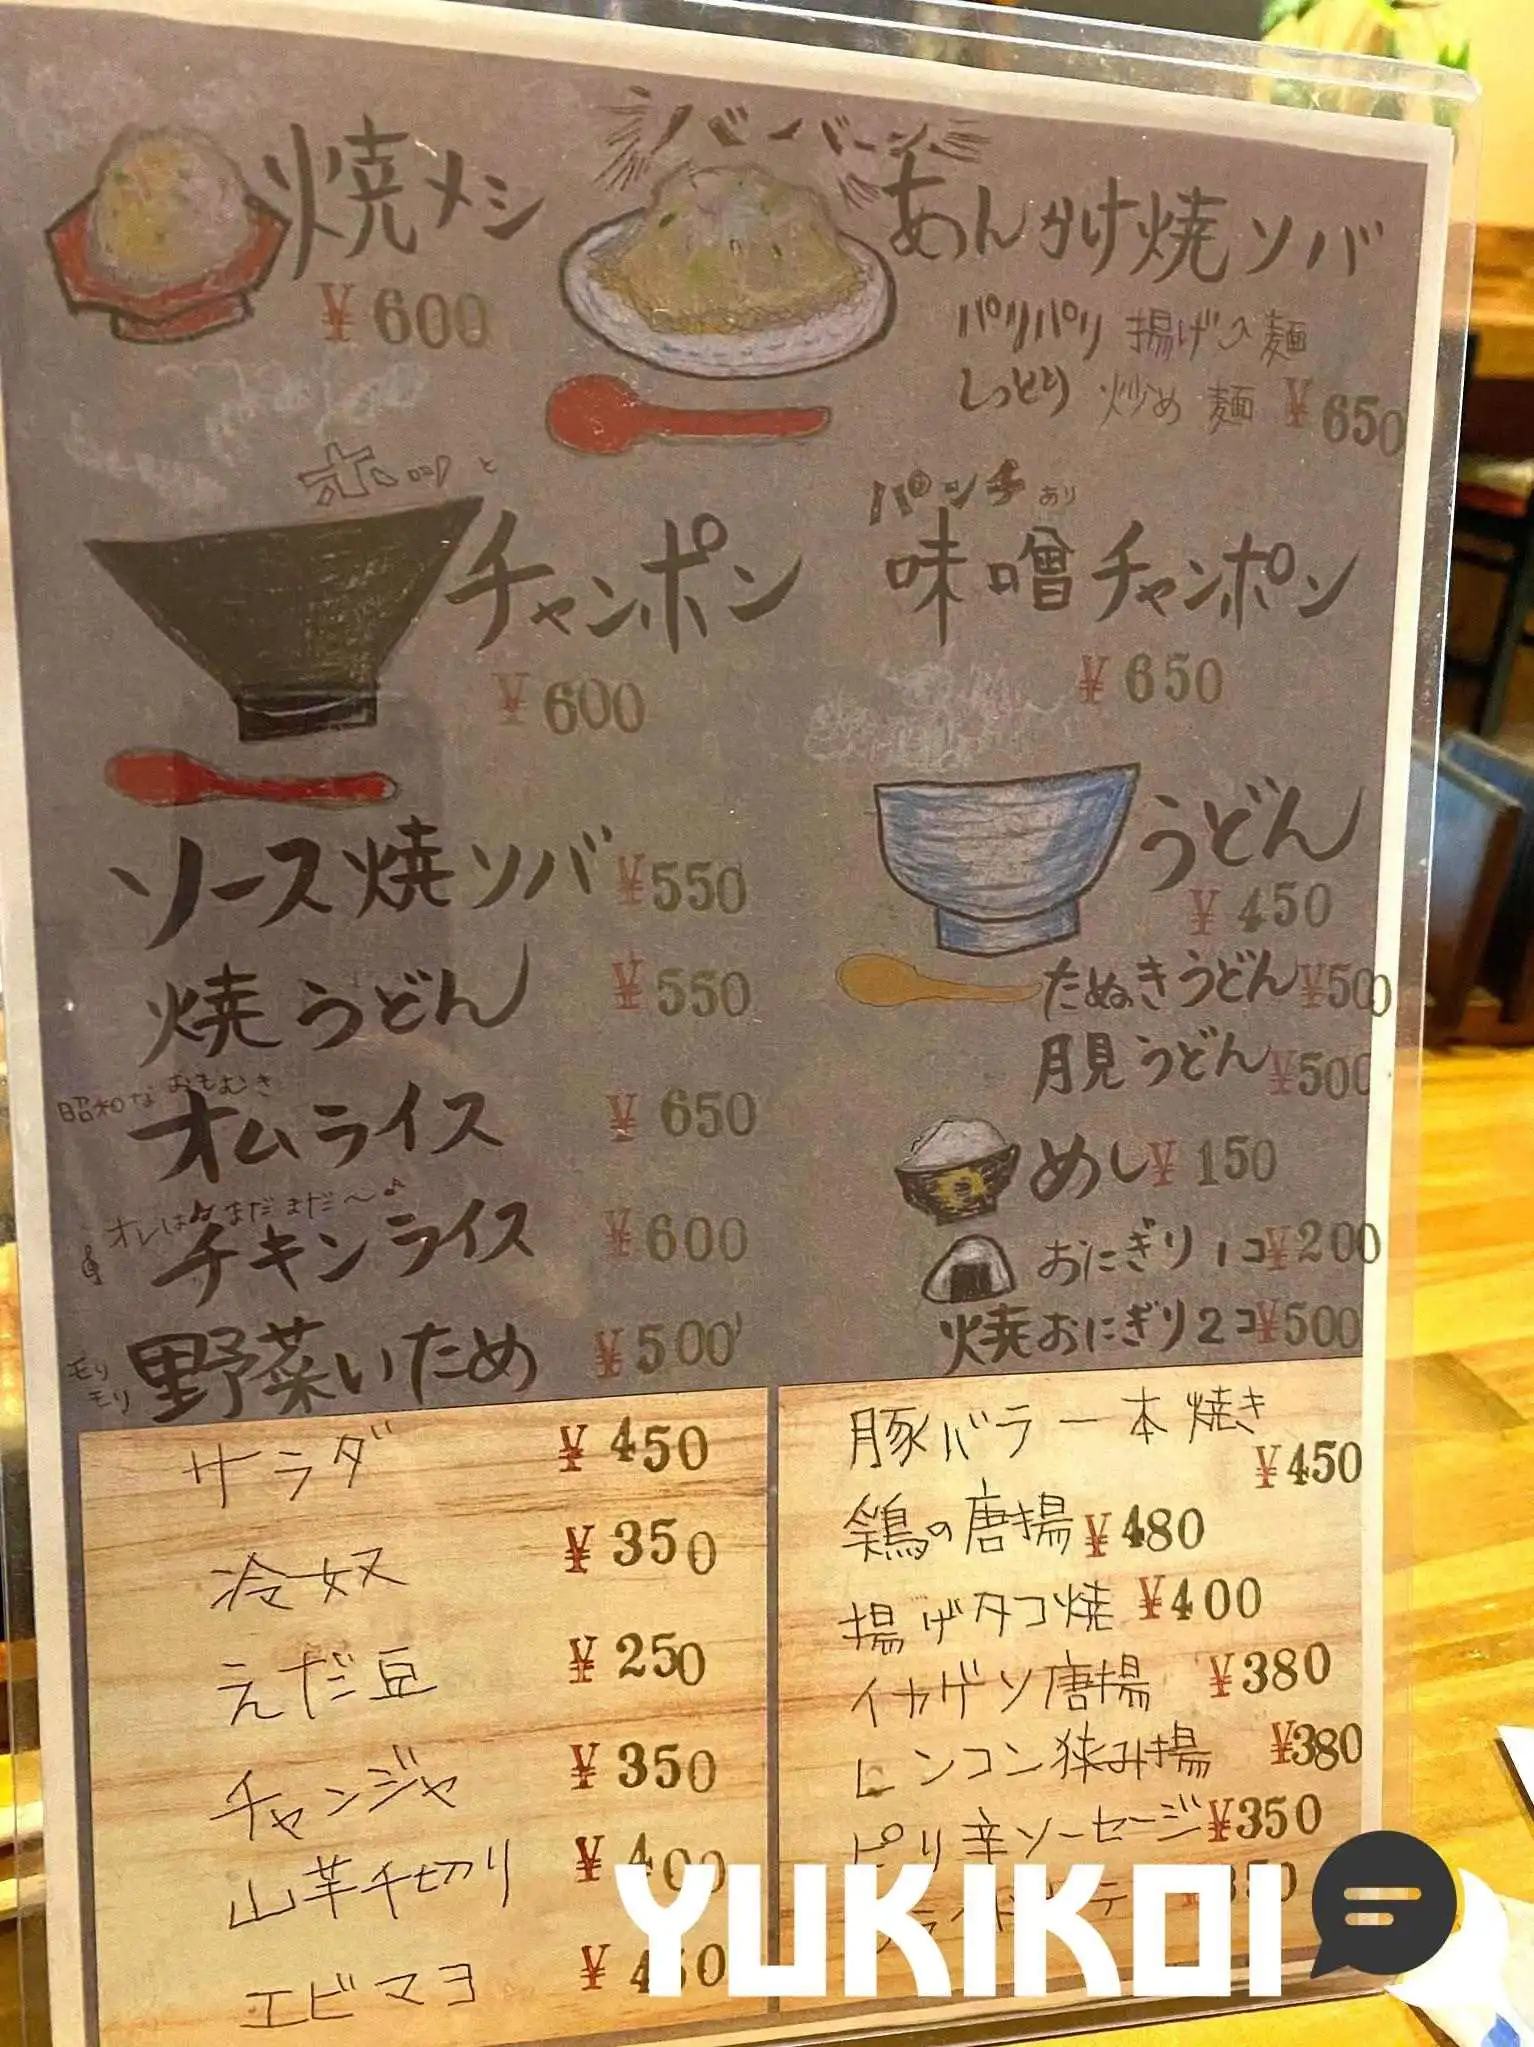 焼メシ
¥600
バーバーン
あんかけ焼ソバ
パリパリ 揚げ入麺
しっとり 炒め 麺 ¥650
ホッと
チャンポン
¥600
パンチあり
味噌チャンポン
¥650
ソース焼ソバ ¥550
焼うどん ¥550
昭和なおもむき
オムライス ¥650
オレはまだまだ〜♪
チキンライス ¥600
モリモリ
野菜いため ¥500
うどん
¥450
たぬきうどん ¥500
月見うどん ¥500
めし ¥150
おにぎり1コ ¥200
焼おにぎり2コ ¥500
サラダ ¥450
冷奴 ¥350
えだ豆 ¥250
チャンジャ ¥350
山芋千切り ¥400
エビマヨ ¥450
豚バラ一本焼き
¥450
鶏の唐揚 ¥480
揚げタコ焼 ¥400
イカゲソ唐揚 ¥380
レンコン狭み揚 ¥380
ピリ辛ソーセージ ¥350
YUKIKOI